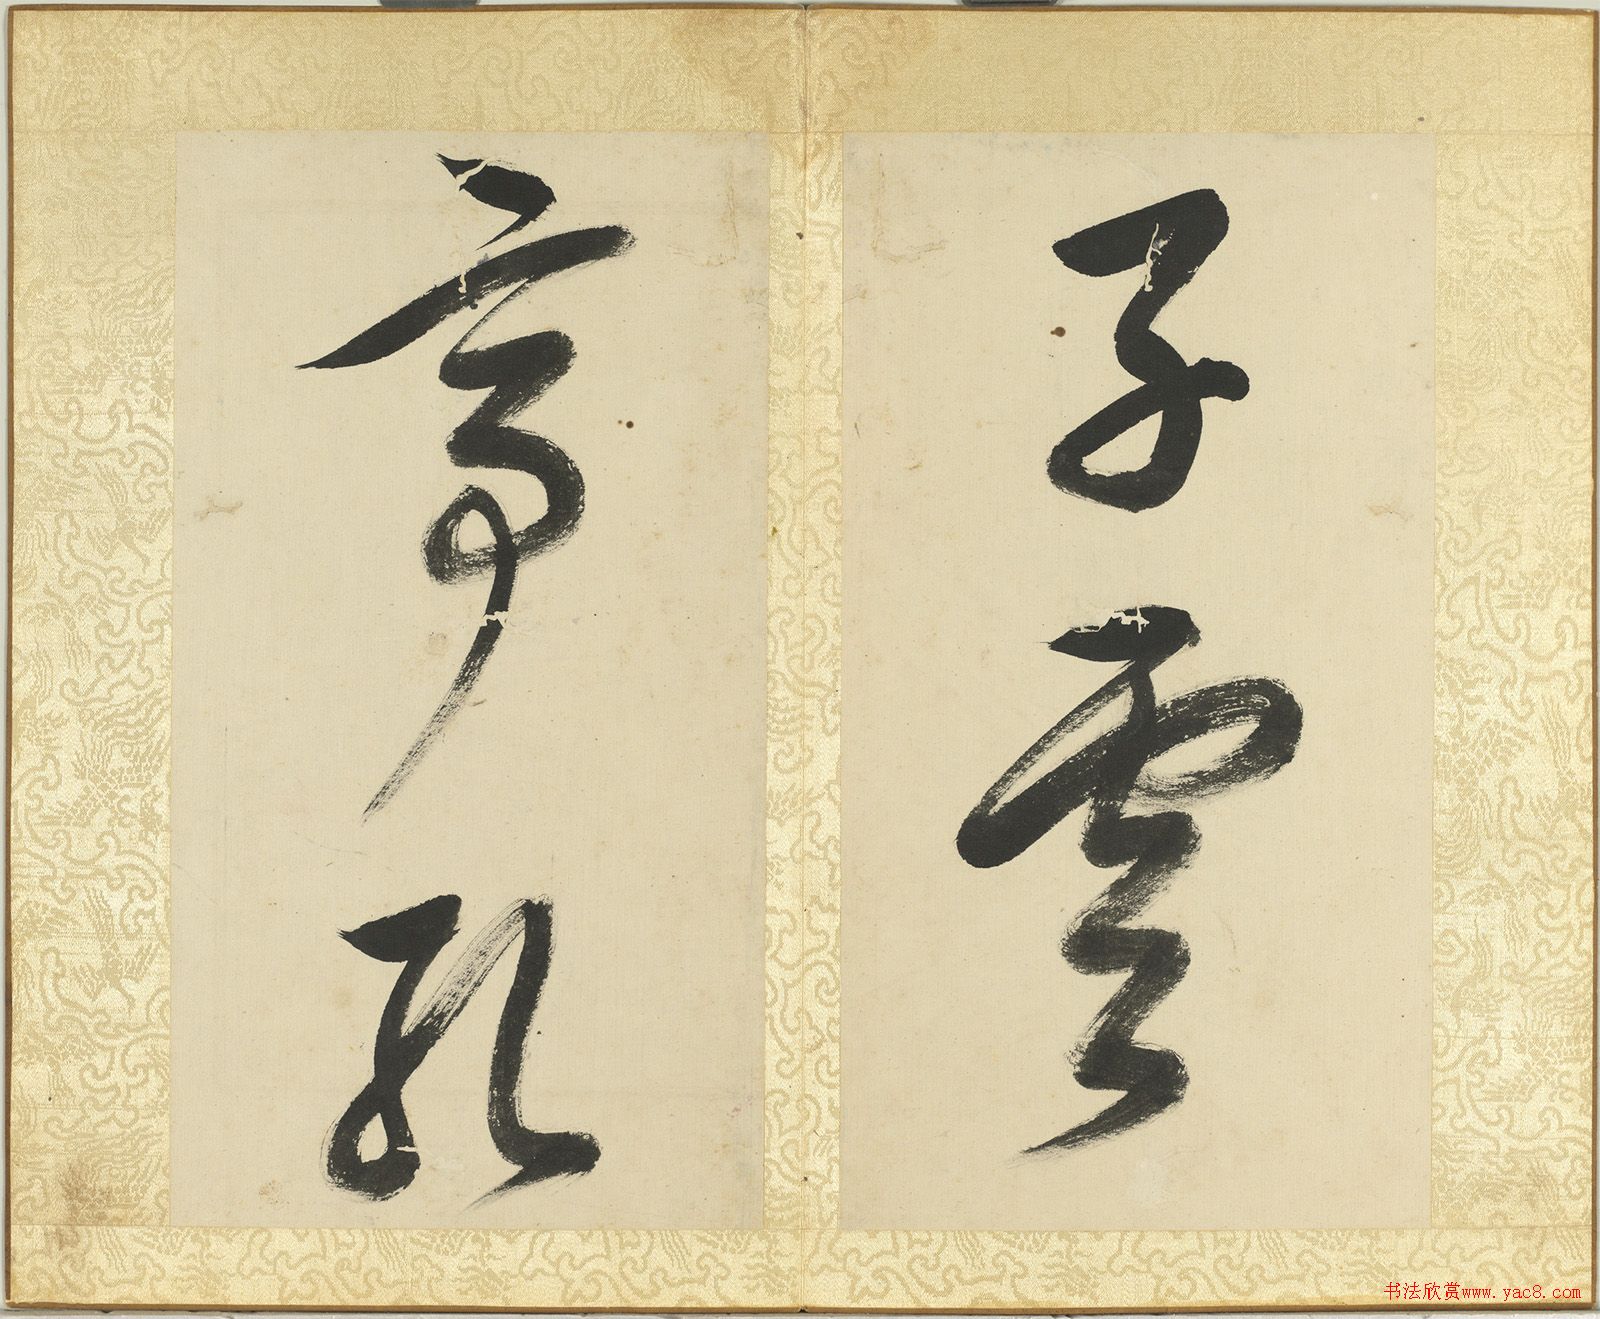 子雲
亭孔
书法欣赏www.yac8.com